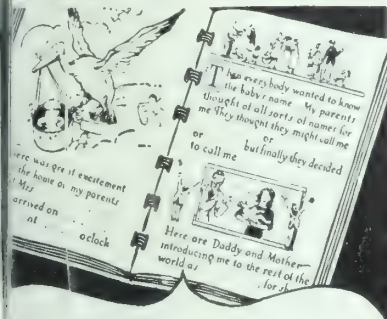 ere was great excitement
the home of my parents
Miss
arrived on
oclock
Then everybody wanted to know
the baby's name My parents
thought of all sorts of names for
me They thought they might call me
or or
but finally they decided
to call me
Here are Daddy and Mother
introducing me to the rest of the
world as for sh